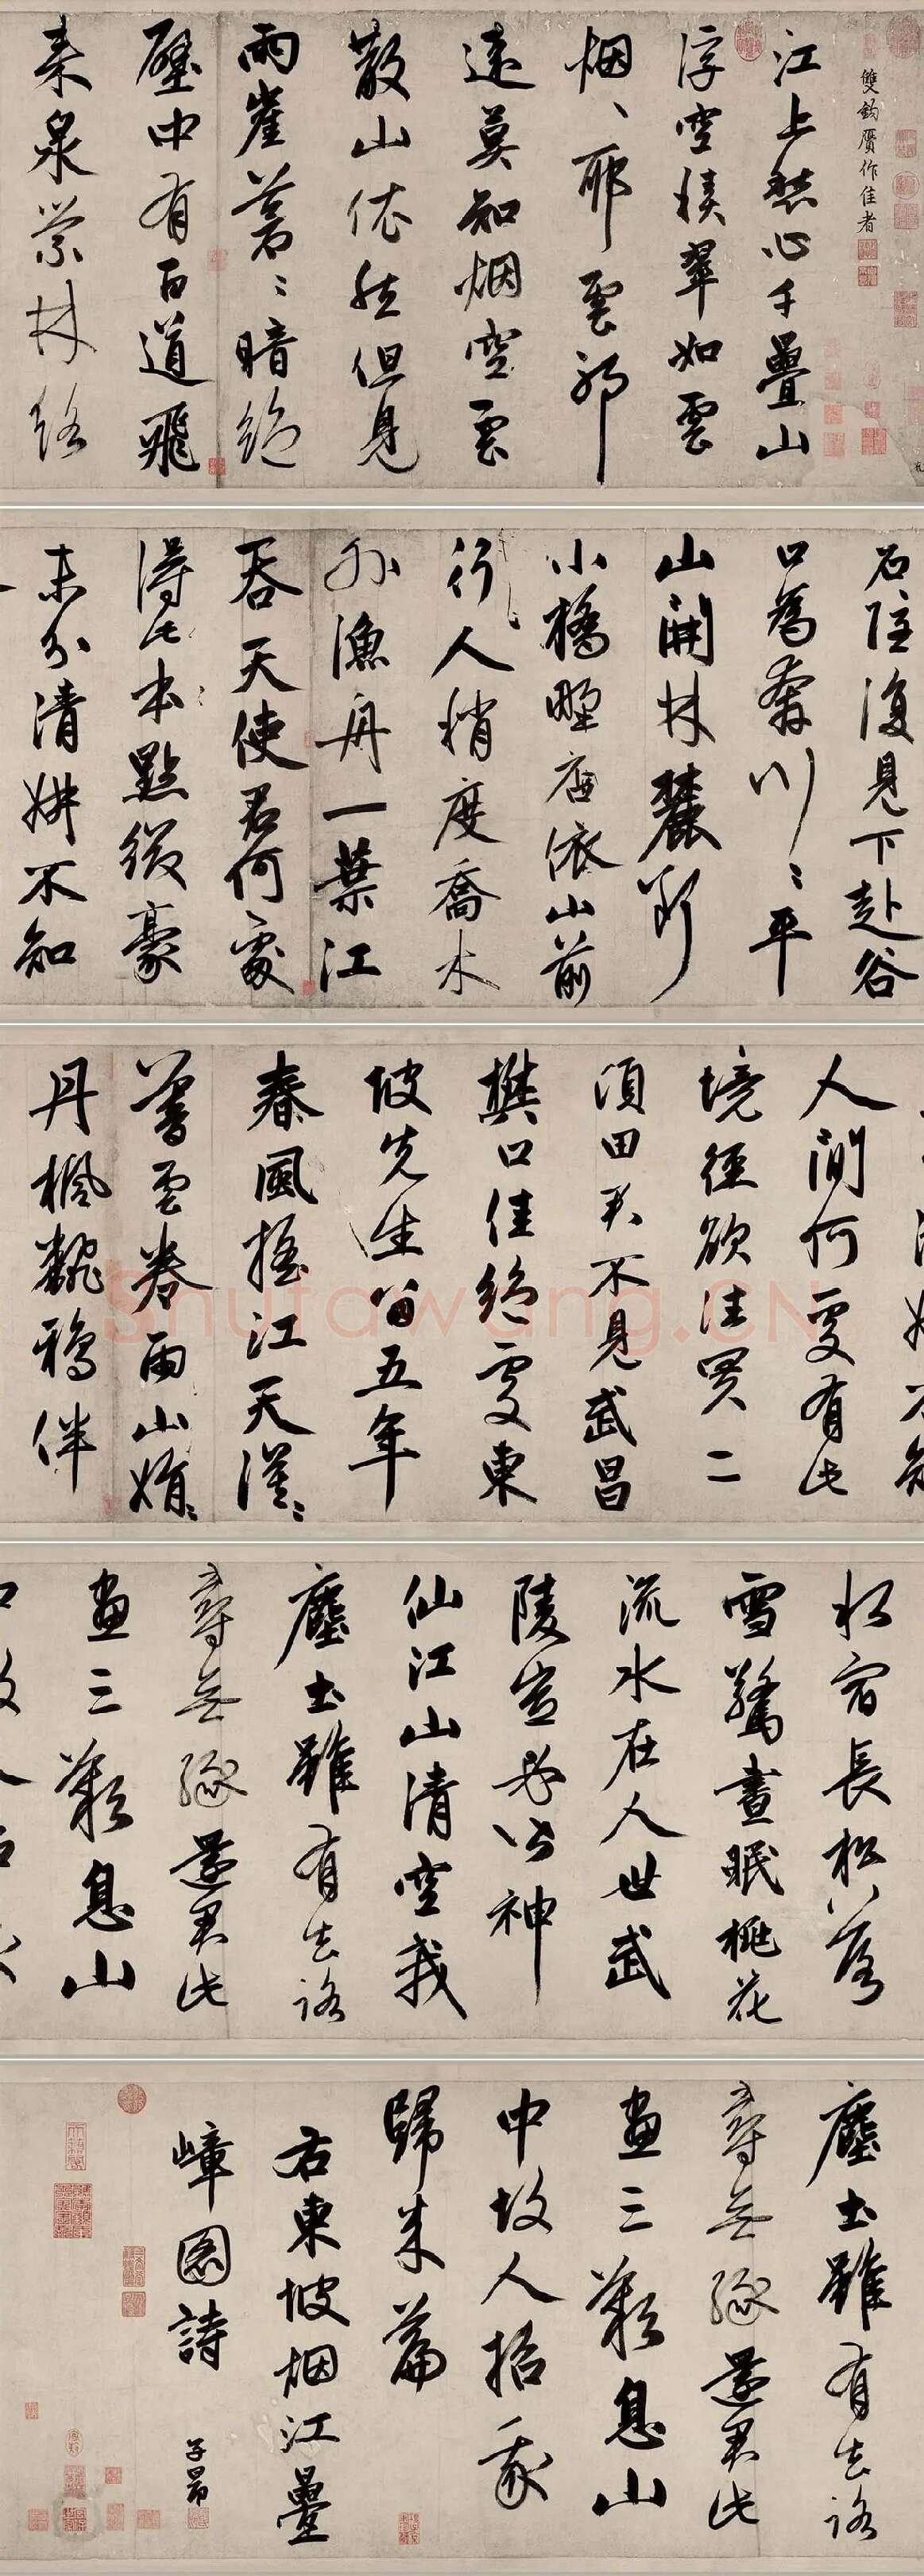 雙鈎贋作佳者
江上愁心千疊山
浮空積翠如雲
烟、耶雲耶
遠莫知烟空雲
散山依然但見
兩崖蒼〻暗絕
壁中有百道飛
來泉縈林絡
石隱復見下赴谷
口爲奔川〻平
山開林麓斷
小橋野店依山前
行人稍度喬木
外漁舟一葉江
吞天使君何處
得此本點綴豪
末分清妍不知
人間何處有此
境徑欲往買二
頃田君不見武昌
樊口佳絕處東
坡先生留五年
春風搖江天漠〻
暮雲卷雨山娟〻
丹楓翻鴉伴
水宿長松落
雪驚晝眠桃花
流水在人世武
陵豈必皆神
仙江山清空我
塵土雖有去路
尋無緣還君此
畫三歎息山
塵土雖有去路
尋無緣還君此
畫三歎息山
中故人招我
歸來篇
右東坡烟江疊
嶂圖詩
子昂
Shufawang.CN